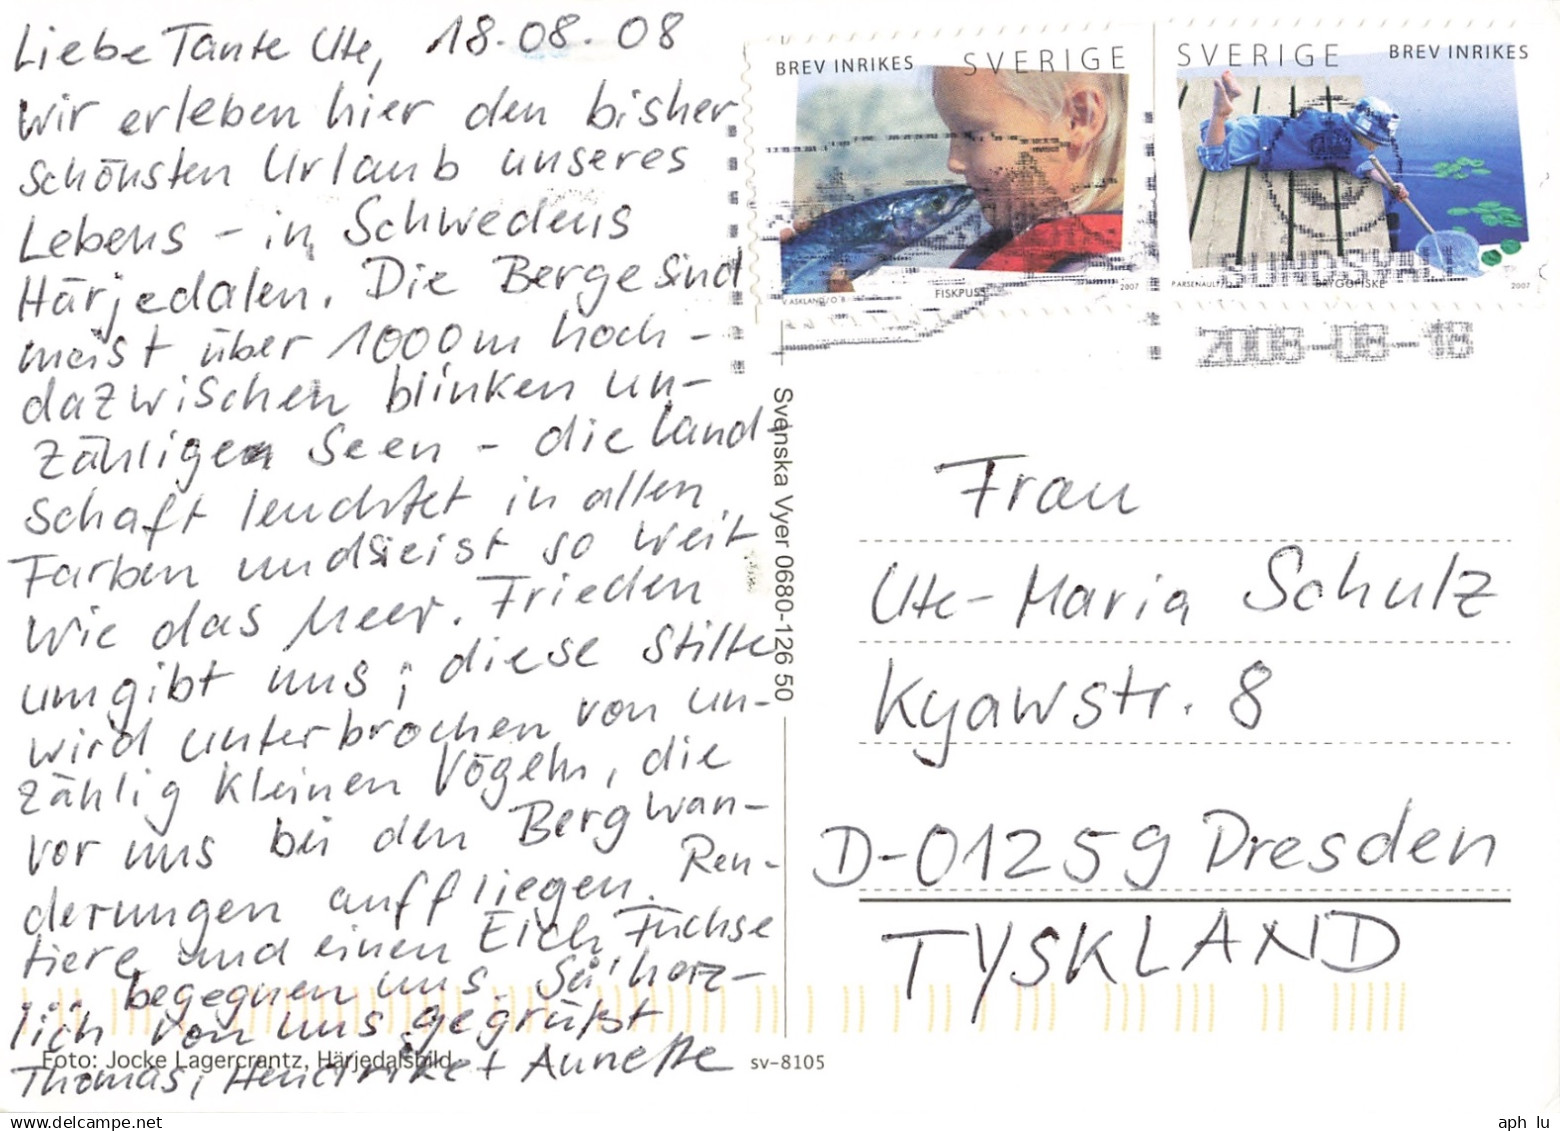 Liebe Tante Ute, 18.08.08
wir erleben hier den bisher
schönsten Urlaub unseres
Lebens - in Schwedens
Härjedalen. Die Berge sind
meist über 1000m hoch -
dazwischen blinken un-
zähligen Seen - die Land-
schaft leuchtet in allen
Farben und sie ist so weit
wie das Meer. Frieden
umgibt uns; diese Stille
wird unterbrochen von un-
zählig kleinen Vögeln, die
vor uns bei den Bergwan-
derungen auffliegen. Ren-
tiere und einen Eich, Füchse
begegnen uns. Sei herz-
lich von uns gegrüßt
Thomas, Hendrike + Annette
Foto: Jocke Lagercrantz, Härjedalsbild
sv-8105
Svenska Vyer 0680-126 50
BREV INRIKES SVERIGE
FISKPUSS
2007
SVERIGE BREV INRIKES
BRYGGFISKE
2007
SUNDSVALL
2008-08-18
Frau
Ute-Maria Schulz
Kyawstr. 8
D-01259 Dresden
TYSKLAND
aph_lu